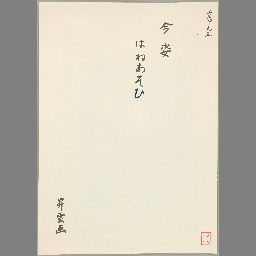 今姿
はねあそび
昇雲画